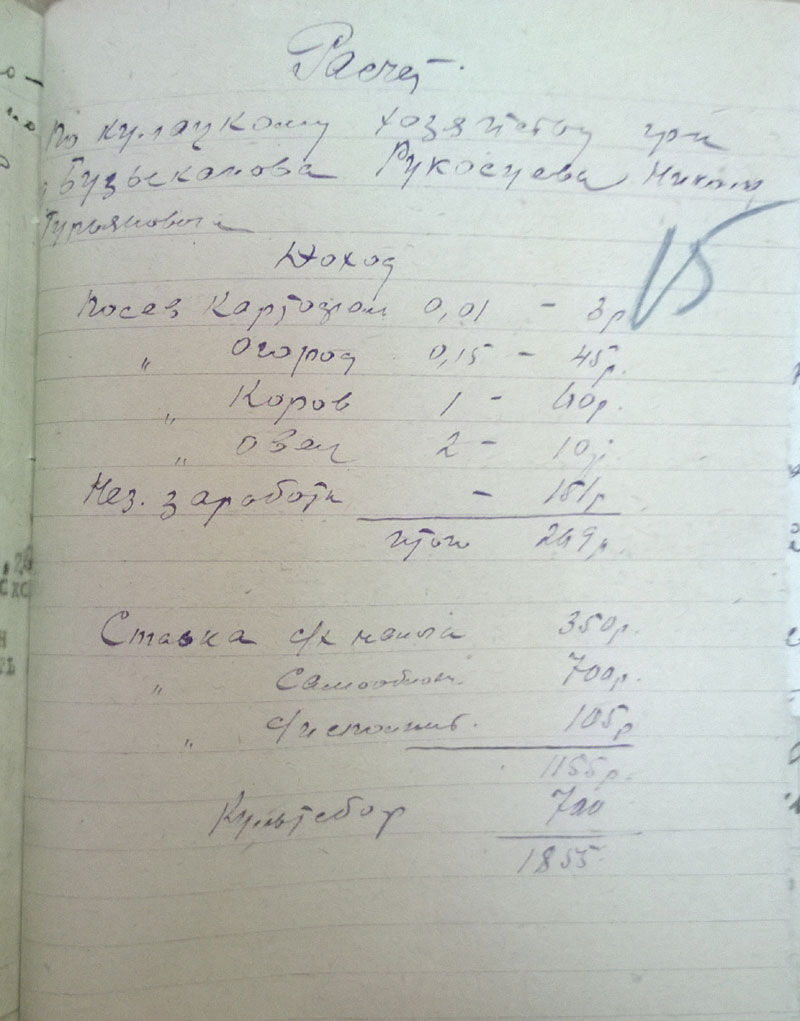 Расчет.
По кулацкому хозяйству гри
Бузыканова Рукосуева Никол
Гурьяновога
Доход
Посев Картофеля 0,01 - 3р
" Огород 0,15 - 45р.
" Коров 1 - 40р.
" Овец 2 - 10р
Нез. заработк - 151р
итого 249р.
Ставка с/х налога 350р.
" Самообложе. 700р.
" 105р
1155р.
Культсбор 700
1855
15